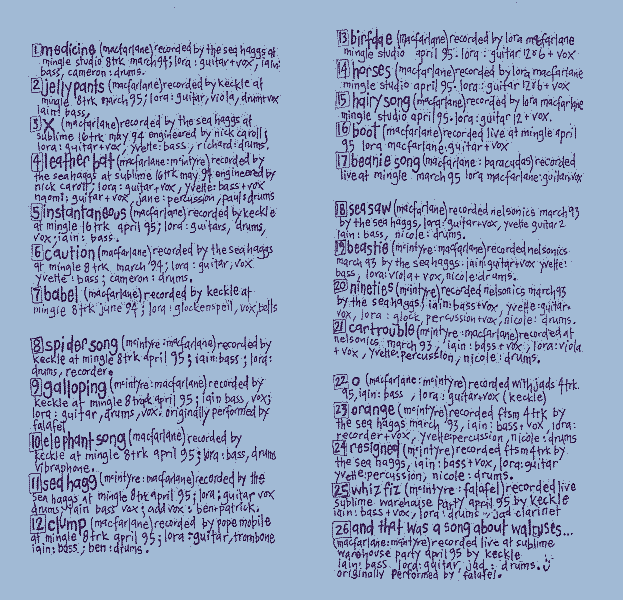 1 medicine (macfarlane) recorded by the sea haggs at
mingle studio 8trk march 94; lora: guitar + vox, iain:
bass, cameron: drums.
2 jellypants (macfarlane) recorded by keckle at
mingle 8trk march 95; lora: guitar, viola, drum+vox
iain: bass.
3 X (macfarlane) recorded by the sea haggs at
sublime 16trk may 94 engineered by nick carroll;
lora: guitar + vox; yvette: bass, richard: drums.
4 leather bat (macfarlane: mcintyre) recorded by
the seahaggs at sublime 16trk may 94 engineered by
nick caroll, lora: guitar+vox, yvette: bass + vox
naomi: guitar + vox, jane: percussion, paul: drums
5 instantaneous (macfarlane) recorded by keckle
at mingle 16trk april 95; lora: guitars, drums,
vox; iain: bass.
6 caution (macfarlane) recorded by the sea haggs
at mingle 8trk march '94; lora: guitar, vox
yvette: bass; cameron: drums.
7 babel (macfarlane) recorded by keckle at
mingle 8trk june 94; lora: glockenspeil, vox, bells
8 spider song (mcintyre: macfarlane) recorded by
keckle at mingle 8trk april 95; iain: bass; lora:
drums, recorder.
9 galloping (mcintyre: macfarlane) recorded by
keckle at mingle 8trk april 95; iain bass, vox;
lora: guitar, drums, vox. originally performed by
falafel.
10 elephant song (macfarlane) recorded by
keckle at mingle 8trk april 95; lora: bass, drums
vibraphone.
11 sea hagg (mcintyre: macfarlane) recorded by the
sea haggs at mingle 8trk april 95; lora: guitar vox
drums; iain bass vox; add vox: ben+patrick.
12 clump (macfarlane) recorded by pope mobile
at mingle 8trk april 95; lora: guitar, trombone
iain: bass; ben: drums.
13 birfdae (macfarlane) recorded by lora macfarlane
mingle studio april 95. lora: guitar 12+6 + vox
14 horses (macfarlane) recorded by lora macfarlane
mingle studio april 95. lora: guitar 12+6 + vox
15 hairy song (macfarlane) recorded by lora macfarlane
mingle studio april 95. lora: guitar 12 + vox.
16 boot (macfarlane) recorded live at mingle april
95 lora macfarlane: guitar + vox
17 beanie song (macfarlane: baracudas) recorded
live at mingle march 95 lora macfarlane: guitar+vox
18 sea saw (macfarlane) recorded nelsonics march 93
by the sea haggs, lora: guitar+vox, yvette guitar 2
iain: bass, nicole: drums.
19 beastie (mcintyre: macfarlane) recorded nelsonics
march 93 by the sea haggs: iain: guitar+vox yvette:
bass, lora: viola + vox, nicole: drums.
20 nineties (mcintyre) recorded nelsonics march 93
by the sea haggs; iain: bass+vox, yvette: guitar
vox, lora: glock, percussion + vox, nicole: drums.
21 cartrouble (mcintyre: macfarlane) recorded at
nelsonics, march 93, iain: bass + vox, lora: viola
+ vox, yvette: percussion, nicole: drums.
22 o (macfarlane: mcintyre) recorded with jads 4trk.
95, iain: bass, lora: guitar + vox (keckle)
23 orange (mcintyre) recorded ftsm 4trk by
the sea haggs march 93, iain: bass + vox, lora:
recorder + vox, yvette: percussion, nicole: drums
24 resigned (mcintyre) recorded ftsm 4trk by
the sea haggs, iain: bass + vox, lora: guitar
yvette: percussion, nicole: drums.
25 whiz fiz (mcintyre: falafel) recorded live
sublime warehouse party april 95 by keckle
iain: bass + vox, lora: drums - jad clarinet
26 and that was a song about walruses...
(macfarlane: mcintyre) recorded live at sublime
warehouse party april 95 by keckle
iain: bass lora: guitar, jad: drums.
originally performed by falafel.